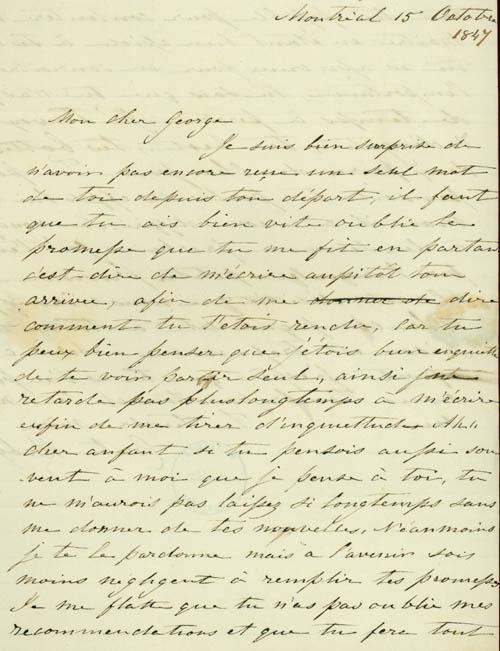 Montréal 15 Octobre
1847
Mon cher George
Je suis bien surprise de
n'avoir pas encore reçu un seul mot
de toi depuis ton départ, il faut
que tu ais bien vite oublie la
promesse que tu me fit en partan
c'est-dire de m'écrire aussitôt ton
arrivée, afin de me donner de dire
comment tu t'etois rendu, Car tu
peux bien penser que j'étois bien enquiette
de te voir partir seul, ainsi ne
retarde pas pluslongtemps a m'écrire
enfin de me tirer d'inquiettude
cher enfant si tu pensois aussi sou
vent à moi que je pense à toi, tu
ne m'aurois pas laissez si longtemps sans
me donner de tes nouvelles, Néanmoins
je te le pardonne mais à l'avenir sois
moins negligent à remplir tes promesses
Je me flatte que tu n'as pas oublie mes
recommendations et que tu fera tout